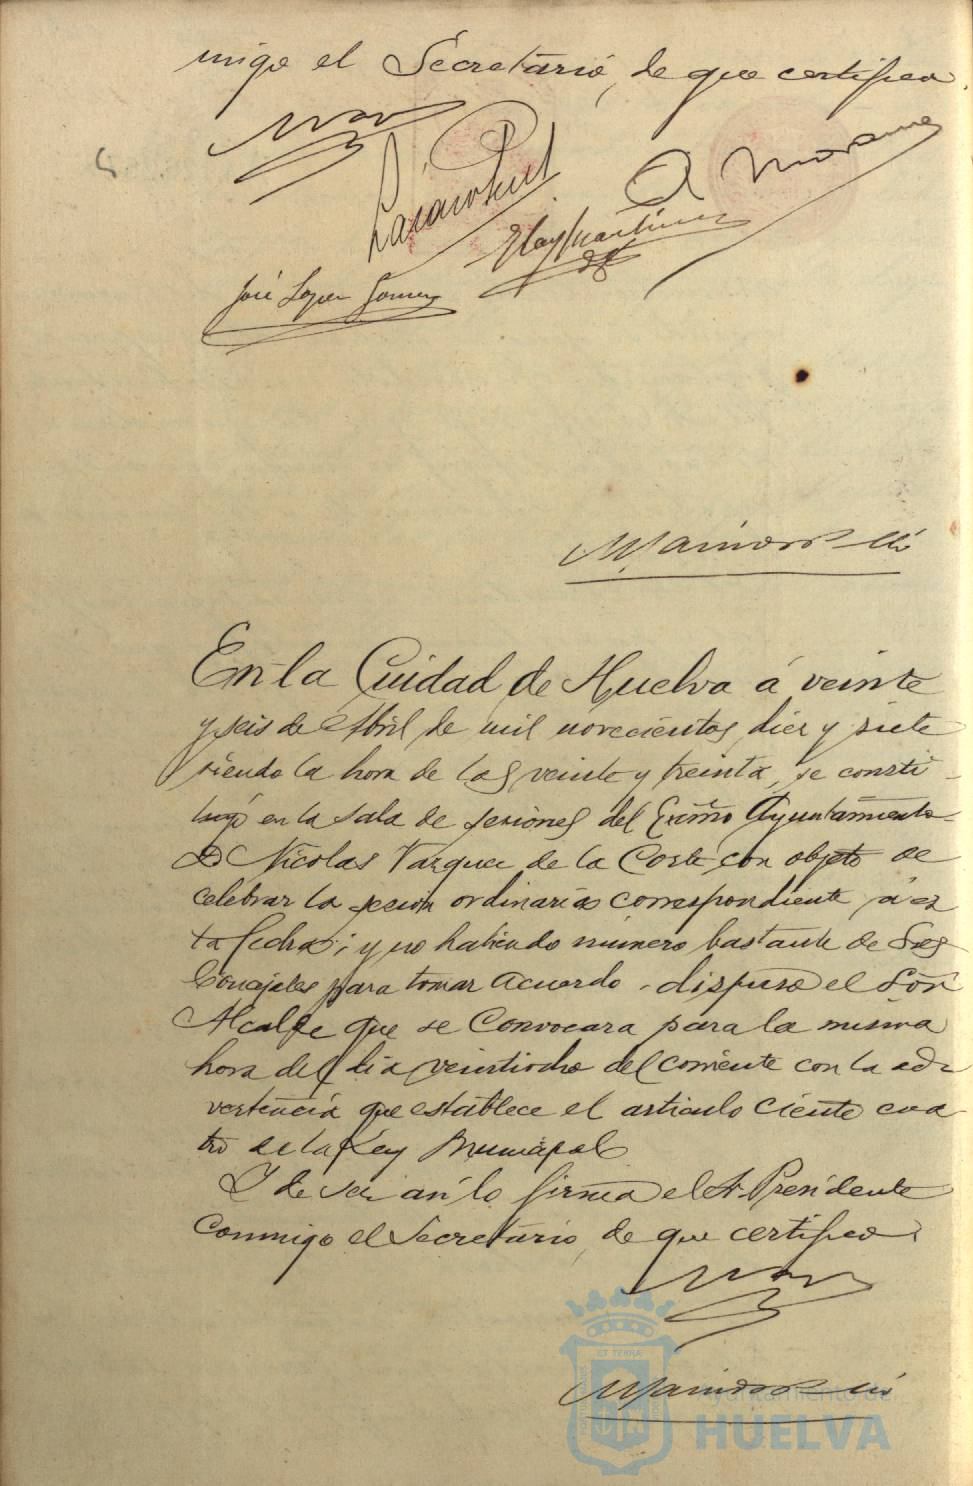 migo el Secretario, de que certifico.
José Lopez Gomez
Eloy Martinez
En la Ciudad de Huelva á veinte
y seis de Abril de mil novecientos diez y siete
siendo la hora de las veinte y treinta, se consti-
tuyó en la sala de sesiones del Excmo Ayuntamiento
D Nicolas Vazquez de la Corte con objeto de
celebrar la sesion ordinaria correspondiente á es
ta fecha; y no habiendo numero bastante de Sres
Concejales para tomar acuerdo, dispuso el Señor
Alcalde que se convocara para la misma
hora del dia veintiocho del corriente con la ad-
vertencia que establece el articulo ciento cua-
tro de la Ley Municipal
Y de ser así lo firma el Sr Presidente
conmigo el Secretario, de que certifico.
ET TERRÆ
Ayuntamiento de
HUELVA